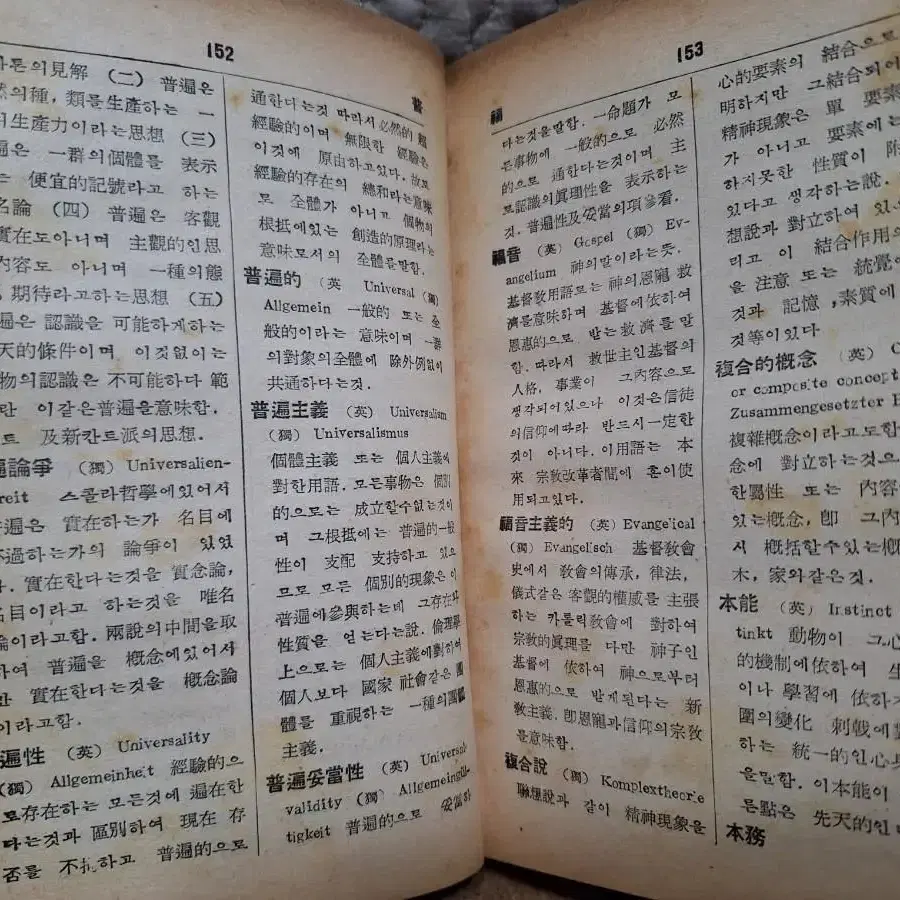 152
톤의見解 (二) 普遍은
의種, 類를生產하는 一
生產力이라는思想 (三)
遍은 一群의個體를 表示
는 便宜的記號라고 하는
名論 (四) 普遍은 客觀
實在도아니며 主觀的인思
內容도 아니며 一種의態
期待라고하는思想 (五)
遍은 認識을 可能하게하는
天的條件이며 이것없이는
物의認識은 不可能하다 範
란 이같은普遍을意味함.
트 及新칸트派의思想.
遍論爭 (獨) Universalien-
reit 스콜라哲學에있어서
普遍은 實在하는가 名目에
不過하는가의 論爭이 있었
. 實在한다는것을 實念論,
名目이라고 하는것을 唯名
論이라고함. 兩說의中間을取
하여 普遍을 槪念에있어서
만 實在한다는것을 槪念論
이라고함.
遍性 (英) Universality
(獨) Allgemeinheit 經驗的으
로存在하는 모든것에 遍在한
다는것과 區別하여 現在 存
否를 不하고 普遍的으로
普
通한다는것 따라서必然的 超
經驗的이며 無限한 經驗은
이것에 原由하고있다. 故로
經驗的存在의 總和라는意味
로 全體가 아니고 個物의
根抵에있는 創造的原理라는
意味로서의 全體를말함.
普遍的 (英) Universal (獨)
Allgemein 一般的 또는 全
般的이라는 意味이며 一群
의對象의全體에 除外例없이
共通하다는것.
普遍主義 (英) Universalism
(獨) Universalismus
個體主義 또는 個人主義에
對한用語. 모든事物은 個別
的으로는 成立할수없는것이
며 그根抵에는 普遍的一般
性이 支配 支持하고 있으
므로 모든 個別的現象은 이
普遍에參與하는데 그存在와
性質을 얻는다는說. 倫理學
上으로는 個人主義에對하여
個人보다 國家 社會같은 團
體를 重視하는 一種의團體
主義.
普遍妥當性 (英) Universal
validity (獨) Allgemeingül-
tigkeit 普遍的으로 妥當하
153
福
다는것을말함. 一命題가 모
든事物에 一般的으로 必然
的으로 通한다는것이며 主
로認識의眞理性을 表示하는
것. 普遍性及妥當의項參看.
福音 (英) Gospel (獨) Ev-
angelium 神의말이라는뜻.
基督敎用語로는 神의恩寵 救
濟를意味하며 基督에依하여
恩惠的으로 받는救濟를말
함. 따라서 救世主인基督의
人格, 事業이 그內容으로
생각되어있으나 이것은信徒
의信仰에따라 반드시一定한
것이 아니다. 이用語는 本
來 宗敎改革者間에 흔이使
用되고있다.
福音主義的 (英) Evange'ical
(獨) Evangelisch 基督敎會
史에서 敎會의傳承, 律法,
儀式같은 客觀的權威를 主張
하는 카톨릭敎會에 對하여
宗敎的眞理를 다만 神子인
基督에 依하여 神으로부터
恩惠的으로 받게된다는 新
敎主義. 卽恩寵과信仰의宗敎
를意味함.
複合說 (獨) Komplextheorie
聯想說과 같이 精神現象을
心的要素의 結合으로
明하지만 그結合되어
精神現象은 單 要素
가 아니고 要素에는
하지못한 性質이 附
있다고 생각하는說.
想說과 對立하여 있
리고 이 結合作用의
을 注意 또는 統覺에
것과 記憶, 素質에
것等이있다
複合的槪念 (英) C
or composite concept
Zusammengesetzter B
複雜槪念이라고도함
念에 對立하는것으
한屬性 또는 內容
있는槪念, 卽 그內
서 槪括할수있는槪
木, 家와같은것.
本能 (英) Instinct
tinkt 動物이 그心
的機制에依하여 生
이나 學習에 依하지
圍의變化 刺戟에對
하는 統一的인心身
을말함. 이本能이
른點은 先天的인
本務